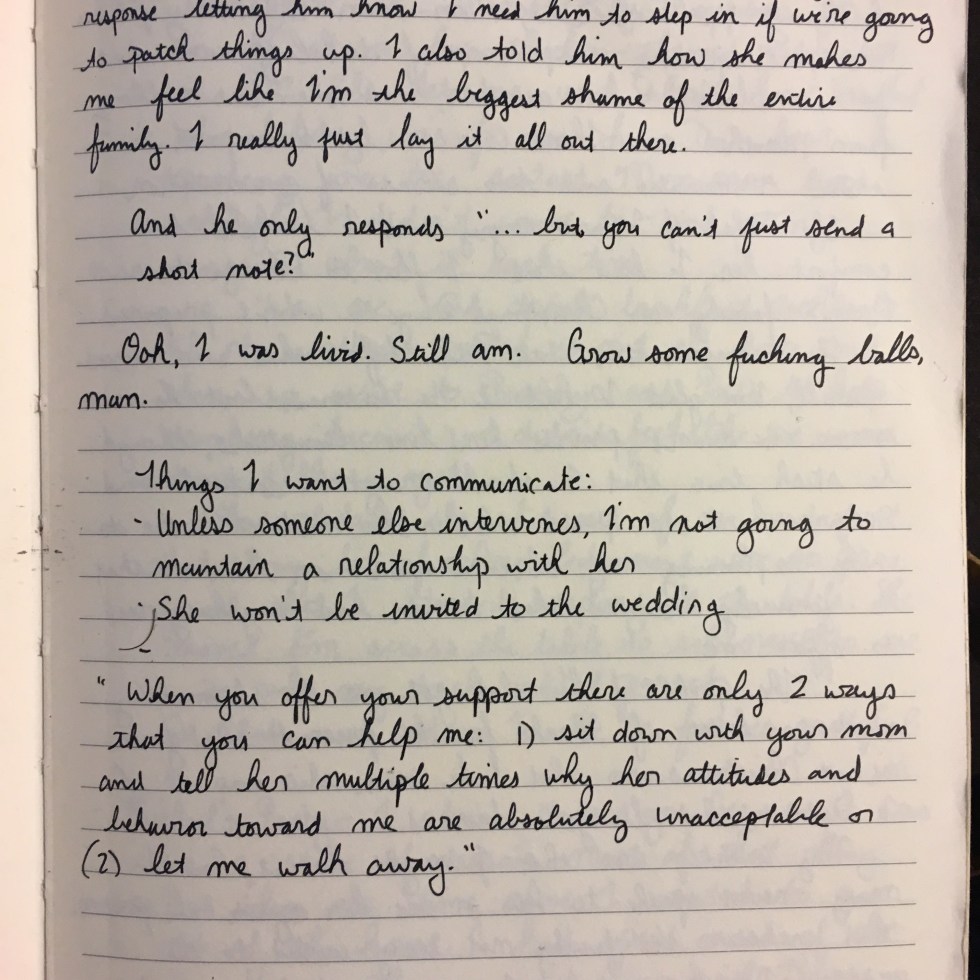 response letting him know I need him to step in if we're going
to patch things up. I also told him how she makes
me feel like I'm the biggest shame of the entire
family. I really just lay it all out there.
And he only responds "... but you can't just send a
short note?"
Ooh, I was livid. Still am. Grow some fucking balls,
man.
Things I want to communicate:
- Unless someone else intervenes, I'm not going to
maintain a relationship with her
- She won't be invited to the wedding
"When you offer your support there are only 2 ways
that you can help me: 1) sit down with your mom
and tell her multiple times why her attitudes and
behavior toward me are absolutely unacceptable or
(2) let me walk away."